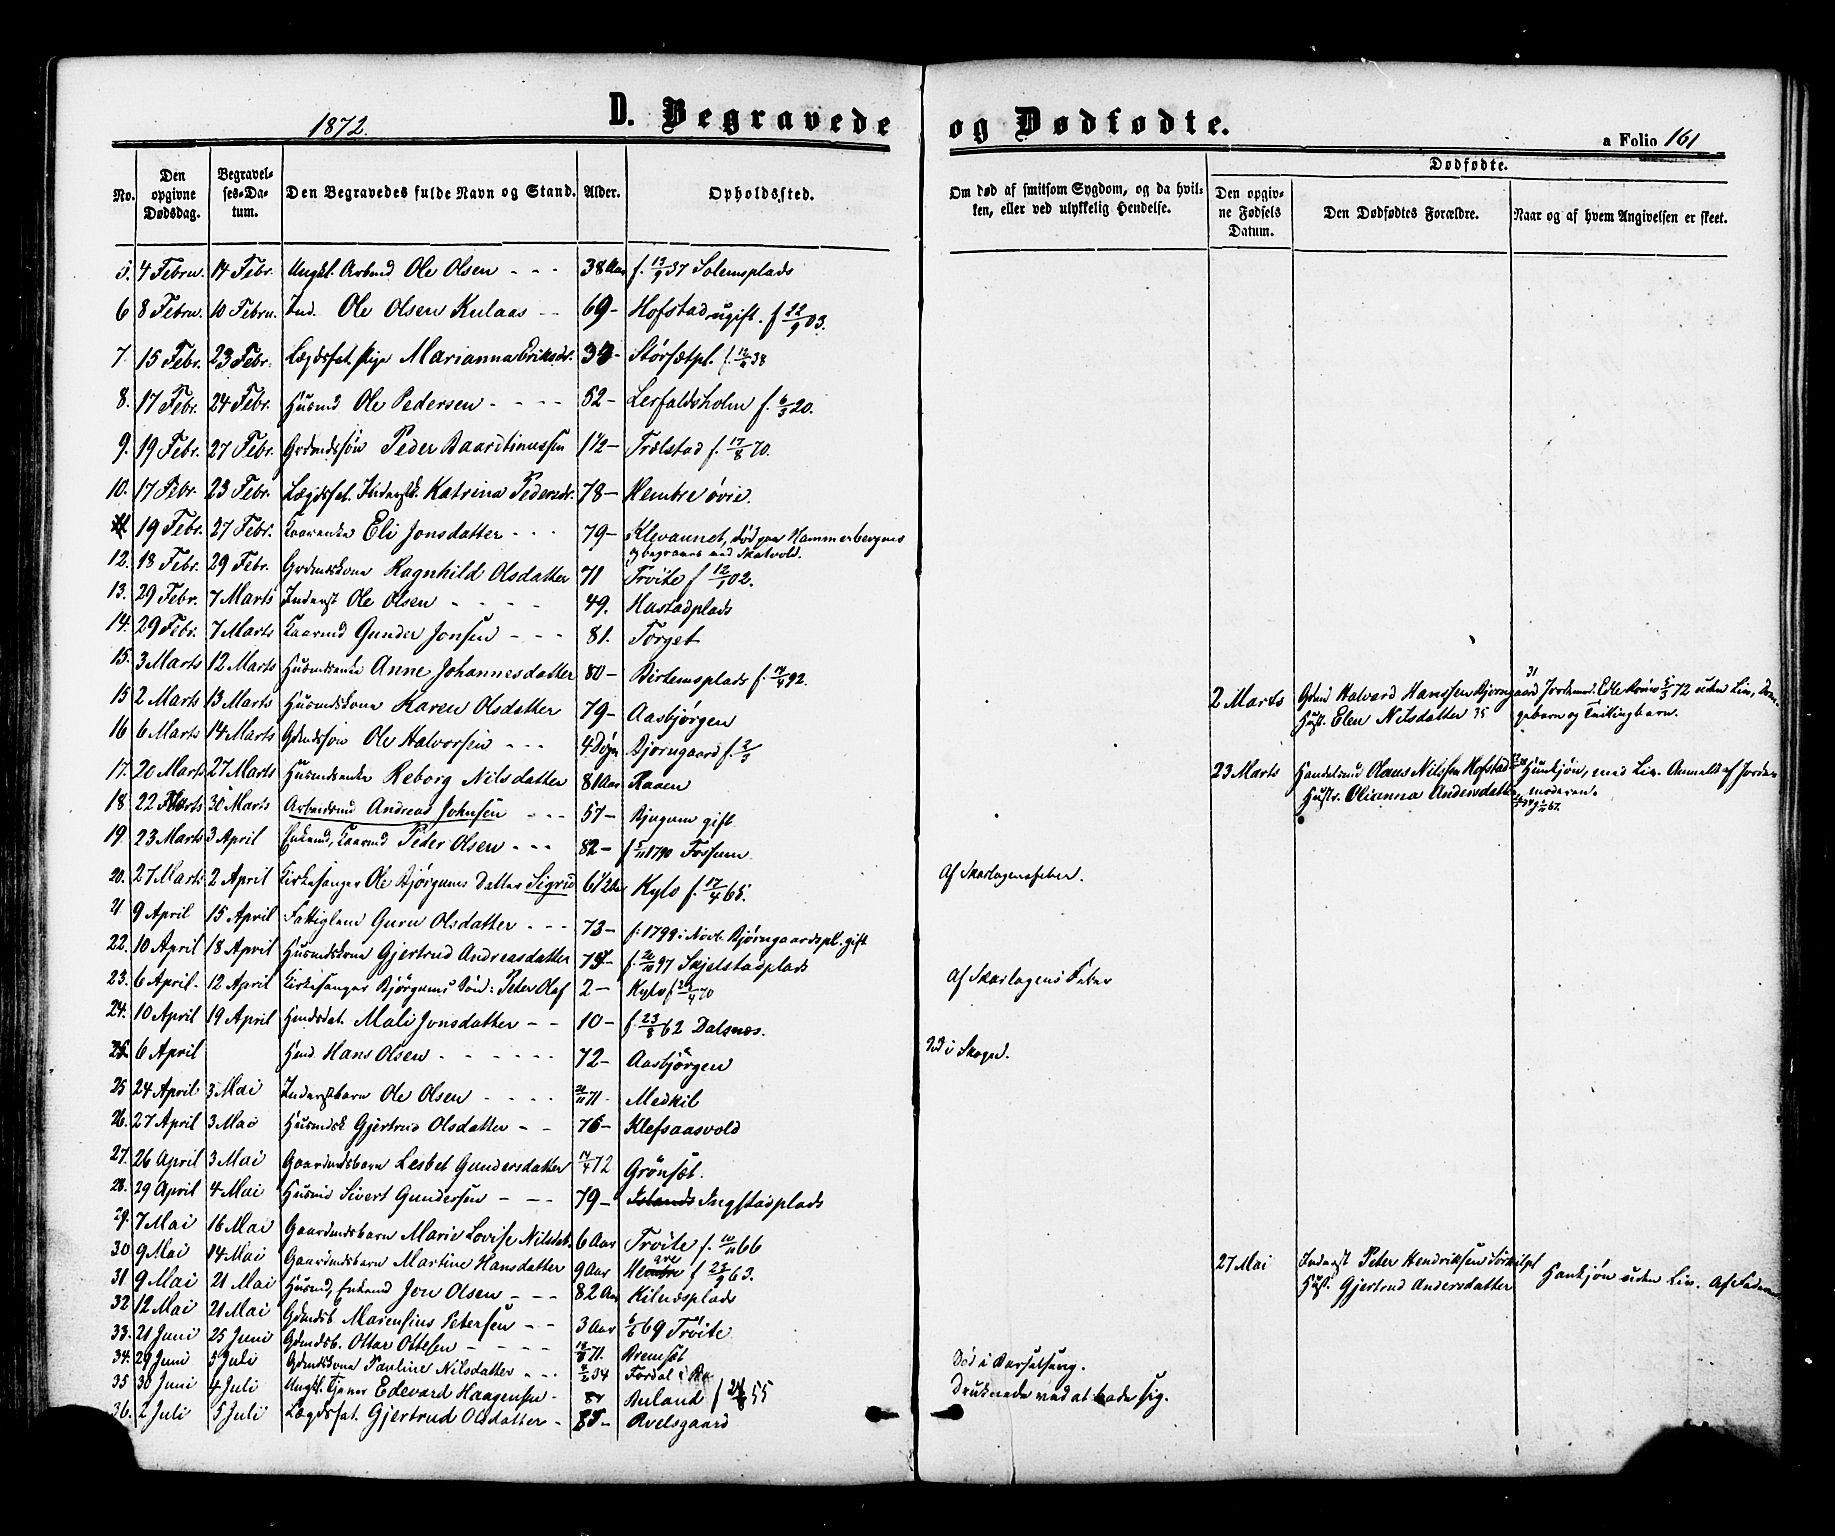 1872. D. Begravede og Dødfødte. a Folio 161
No. Den opgivne Dødsdag. Begravelses-Datum. Den Begravedes fulde Navn og Stand. Alder. Opholdssted. Om død af smitsom Sygdom, og da hvilken, eller ved ulykkelig Hendelse. Dødfødte. Den opgivne Fødsels Datum. Den Dødfødtes Forældre. Naar og af hvem Angivelsen er skeet.
5. 4 Febru. 14 Febr. Ungk. Arbmd Ole Olsen - - - 38 Aar f. 13/9 37 Solemsplads
6 8 Febru. 10 Febru. Ind. Ole Olsen Kulaas - - 69- Hofstad ugift. f 22/9 03.
7. 15 Febr. 23 Febr. Lægdsfat. pige Marianna Eriksdr. Størsætpl.
8. 17 Febr. 24 Febr. Husmd Ole Pedersen - - - - 52- Lerfaldsholm f. 6/3 20.
9. 19 Febr. 27 Febr. Grdmdssøn Peder Baardtinussen 1½- Trælstad f. 17/8 70.
10. 17 Febr. 23 Febr. Lægdsfat. Inderstk. Katrina Pedersdr. 78- Hembre øvre.
11. 19 Febr. 27 Febr. Kaarenke Eli Jonsdatter - - - 79- Klevaunet, død paa Hammerbergnes
og begraves ved Skatvold.
12. 18 Febr. 29 Febr. Grdmdskone Ragnhild Olsdatter 71 Trøite f 12/1 02.
13. 29 Febr. 7 Marts Inderst Ole Olsen - - - - 49. Hastadplads
14. 29 Febr. 7 Marts Kaarmd Gunder Jonsen - - - 81. Torget
15. 3 Marts 12 Marts Husmdsenke Anne Johannesdatter 80- Birtemsplads f. 14/4 92.
15 2 Marts 13 Marts Husmdskone Karen Olsdatter 79- Aasbjørgen 2 Marts Gdmd Halvard Hanssen Bjørngaard 31
Hust. Elen Nilsdatter 35
uden Liv, Drengebarn og Tvillingbarn.
16 6 Marts 14 Marts Gdmdssøn Ole Halvorsen - - - 4 Døgn Bjørngaard f. 2/3
17. 20 Marts 27 Marts Husmdsenke Reborg Nilsdatter 81 Aar Raaen 23 Marts Handelsmd Olaus Nilssen Hofstad
Hustr. Olianna Andersdatter
Hunkjøn, med Liv. Anmeldt af Jordemoderen.
18. 22 Marts 30 Marts Arbeidsmd Andreas Johnsen - - - 57- Bjugum gift
19. 23 Marts 3 April Enkemd, Kaarmd Peder Olsen - - - 82- f 5/11 1790 Fossum
20. 27 Marts 2 April Kirkesanger Ole Bjørgums Datter Sigrid 6½ Aar Kylo f. 17/4 65. Af Skarlagensfeber.
21 9 April 15 April Fattiglem Guru Olsdatter - - - 73- f. 1799 i Novb. Bjørngaardspl. gift
22. 10 April 18 April Husmdskone Gjertrud Andreasdatter Skjelstadplads
23. 6 April. 12 April Kirkesanger Bjørgums Søn: Peter Olaf 2- Kylo Af Skarlagens Feber
24. 10 April 19 April Husmdsdat. Mali Jonsdatter - - 10- f. 23/8 62 Dalsnæs.
25. 6 April Hmd. Hans Olsen - - - - - - 72- Aasbjørgen Død i Skogen.
25 24 April 3 Mai Inderstbarn Ole Olsen - - - - Medkil
26. 27 April 3 Mai Husmdsk Gjertrud Olsdatter - - 76- Klefsaasvold
27. 26 April 3 Mai Gaardmdsbarn Lesbet Gundersdatter 14/4 72 Grönset.
28. 29 April 4 Mai Husmd Sivert Gundersen - - - 79- Ingstadplads
29. 7 Mai 16 Mai Gaardmdsbarn Marie Lovise Nilsdat. 6 Aar Trøite f. 10/11 66
30 9 Mai 14 Mai Gaardmdsbarn Martine Hansdatter 9 Aar f 23/9 63. 27 Mai Inderst Peter Hendriksen
Hust. Gjertrud Andersdatter
Hankjøn uden Liv. Af Faderen
31 9 Mai 21 Mai Husmd, Enkemd Jon Olsen - - - 82 Aar Kilnesplads
32 12 Mai 21 Mai Gdmdsb Marensius Petersen - - 3 Aar 6/6 69 Trøite
33. 21 Juni 25 Juni Gdmdsb. Ottar Ottesen - - - - - Bremsæt
34. 29 Juni 5 Juli Gdmdskone Pauline Nilsdatter - - - Fordal Død i Barselseng.
35 30 Juni 4 Juli Ungk. Tjener Edevard Haagensen - Buland Druknede ved at bade sig.
36. 2 Juli 5 Juli Lægdsfat. Gjertrud Olsdatter - Avelsgaard